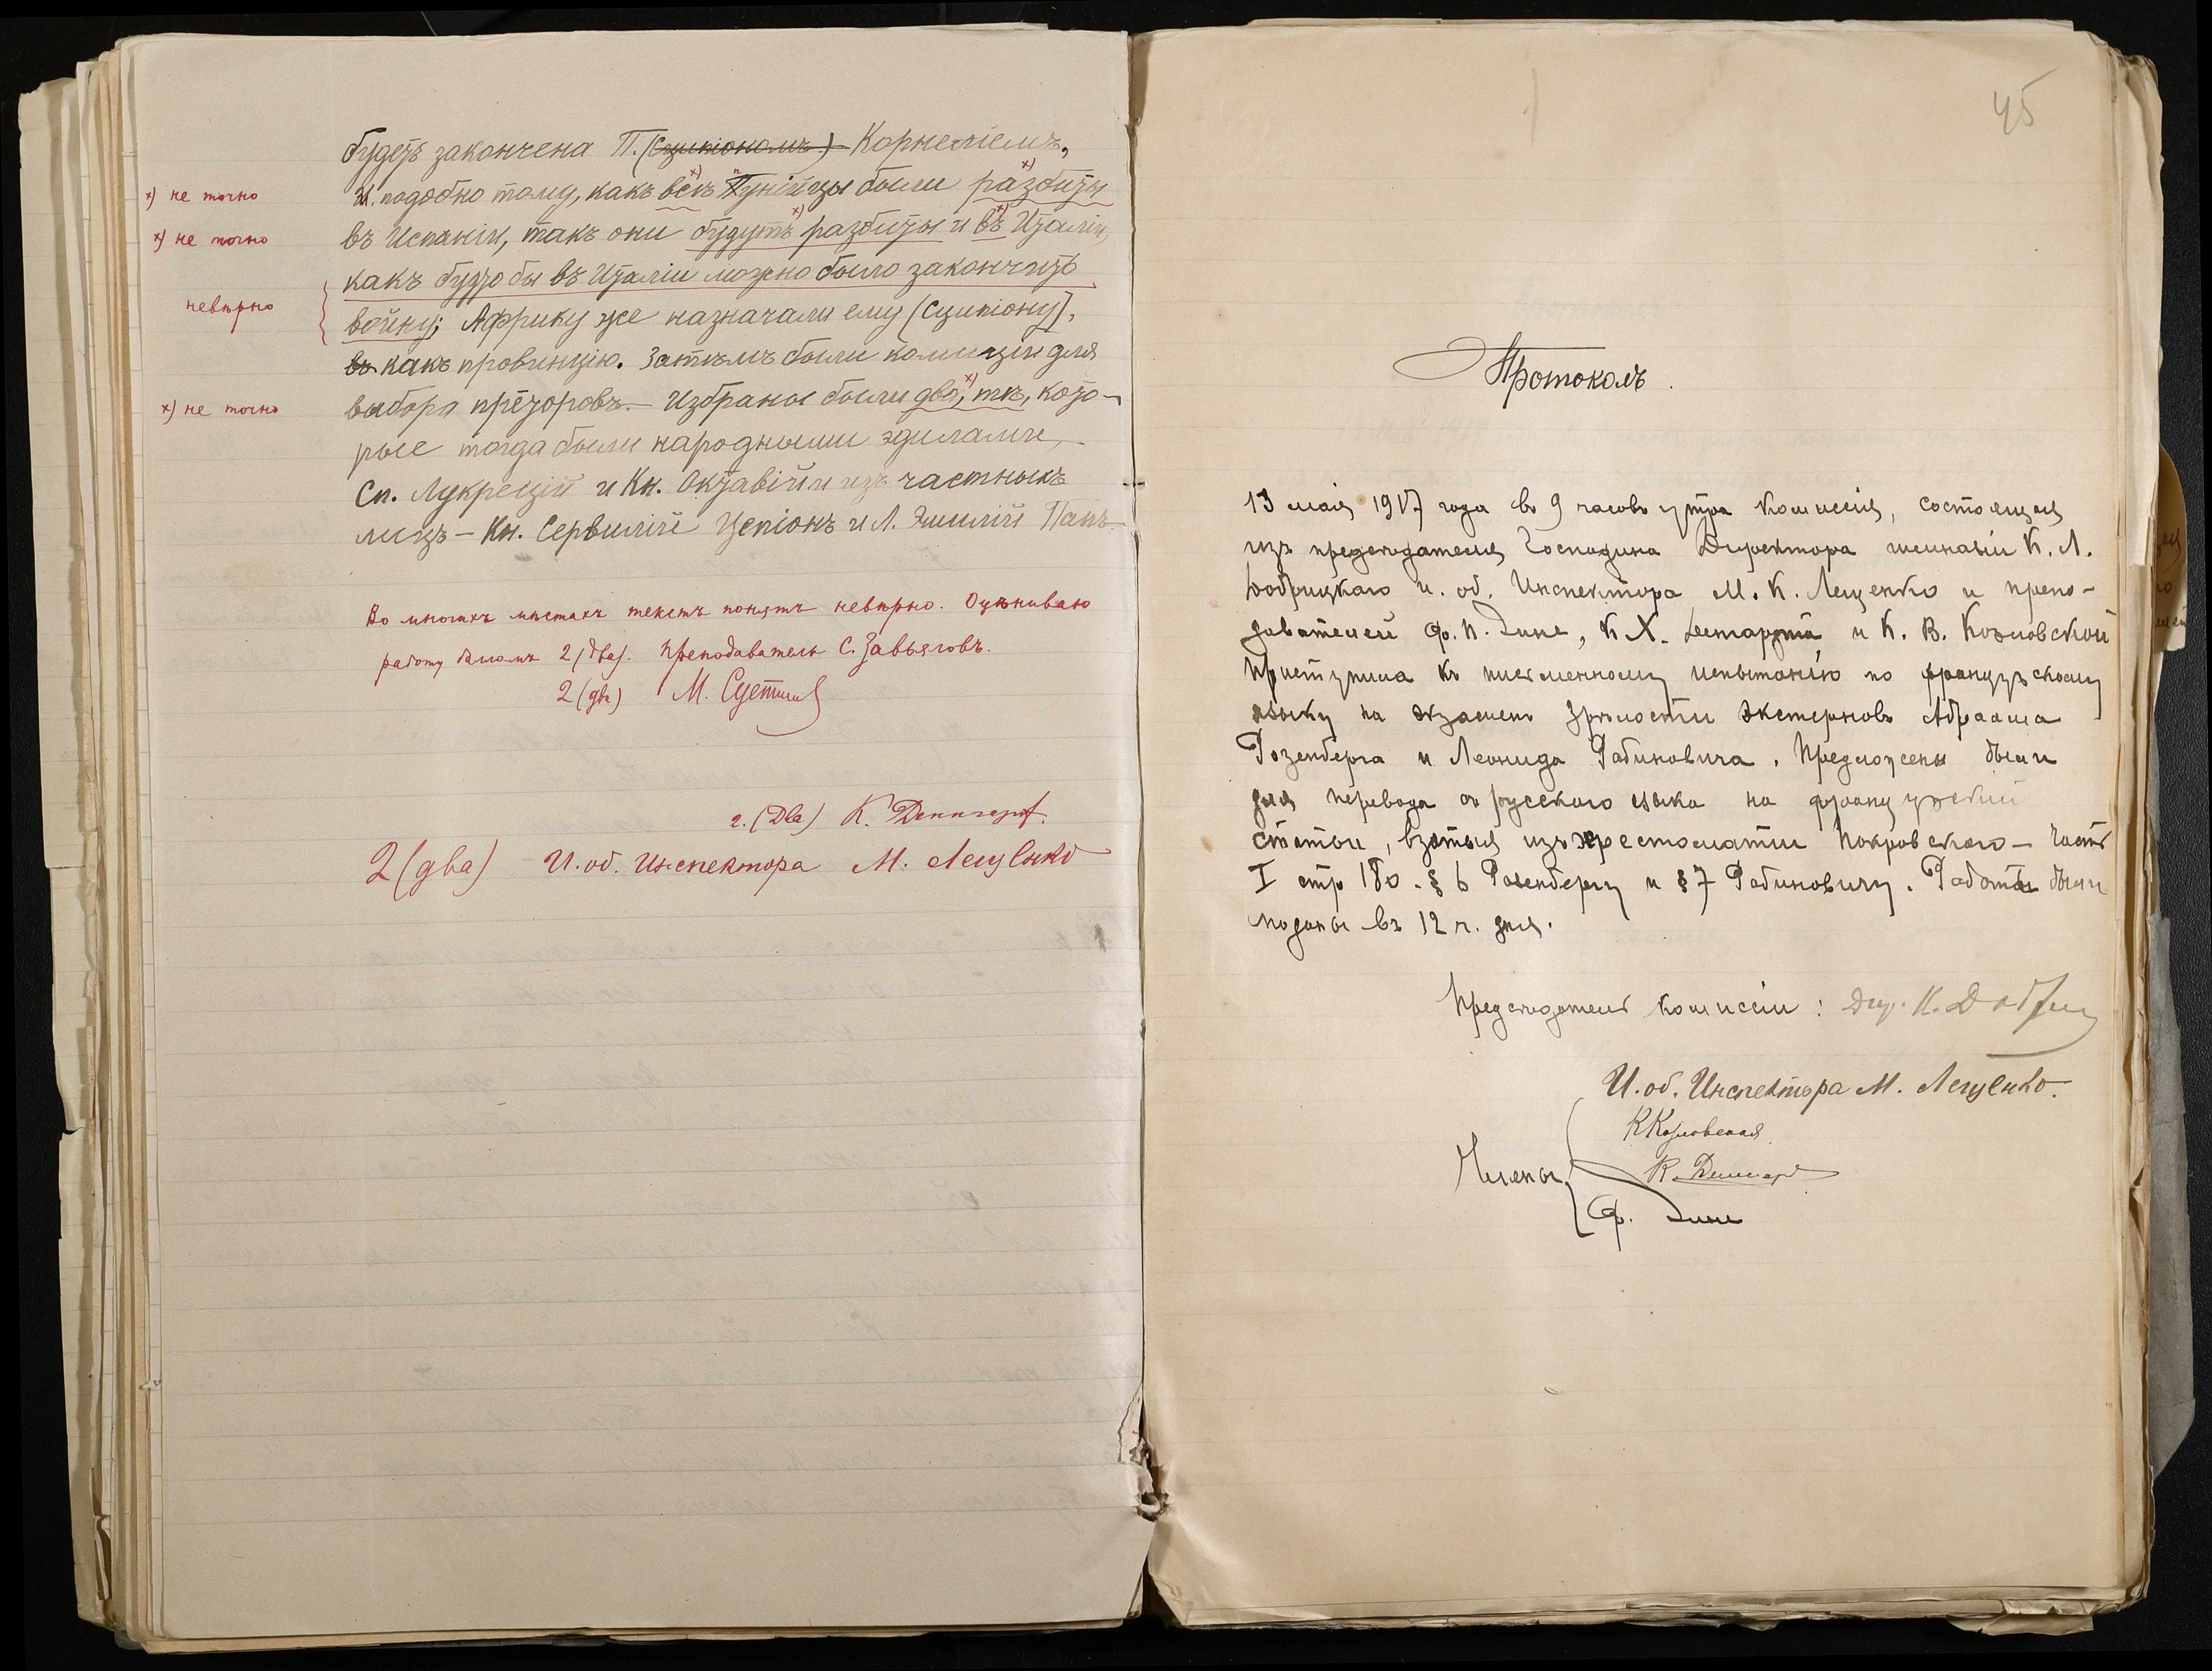 будетъ закончена П. (Сципіономъ) Корнеліемъ,
и подобно тому, какъ всѣ Пунійцы были разбиты
х) не точно
въ Испаніи, такъ они будутъ разбиты и въ Италіи,
х) не точно
какъ будто бы въ Италіи можно было закончить
невѣрно
войну; Африку же назначали ему (Сципіону),
въ какъ провинцію. Затѣмъ были комиціи для
выбора преторовъ. – Избраны были два, тѣ, кото-
х) не точно
рые тогда были народными эдилами,
Сп. Лукрецій и Кн. Октавій и изъ частныхъ
лицъ – Кн. Сервилій Цепіонъ и Л. Эмилій Папъ
Во многихъ мѣстахъ текстъ понятъ невѣрно. Оцѣниваю
работу балломъ 2 (два). Преподаватель С. Завьяловъ.
2 (два) М.
2. (Два) К.
2 (два) И. об. Инспектора М. Лещенко
45
Протоколъ.
13 мая 1917 года въ 9 часовъ утра Комиссія, состоящая
изъ предсѣдателя Господина Директора гимназіи К. Л.
Добрицкаго и. об. Инспектора М. К. Лещенко и препо-
давателей Ф. П. Дине, К. Х. и К. В. Козловской
приступила къ письменному испытанію по французскому
языку на экзаменъ зрѣлости экстерновъ Абрама
Розенберга и Леонида Рабиновича. Предложены были
для перевода съ русскаго языка на французскій
статьи, взятыя изъ хрестоматіи Покровскаго – Часть
I стр 180. § 6 Розенбергу и § 7 Рабиновичу. Работы были
поданы въ 12 ч. дня.
Предсѣдатель Комиссіи: Дир. К.
И. об. Инспектора М. Лещенко.
К Козловская
Члены
К.
Ф. Дине